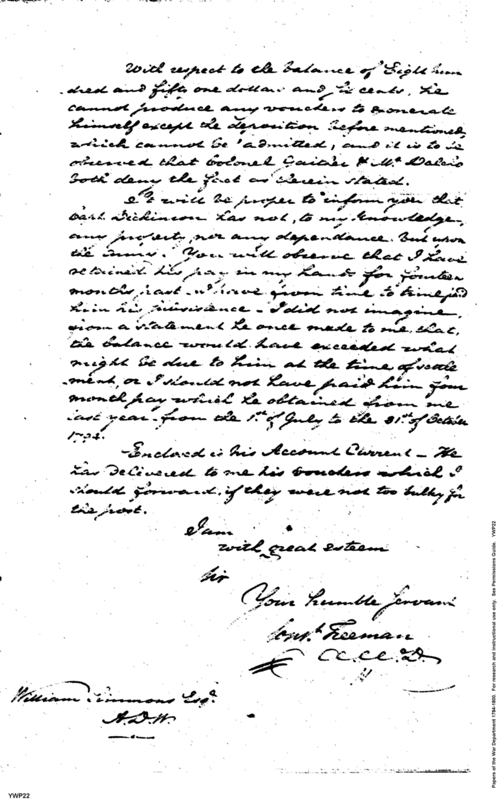 With respect to the balance of Eight hun
dred and fifty one dollars and six cents, he
cannot produce any vouchers to exonerate
himself except the deposition before mentioned,
which cannot be admitted, and it is to be
observed that Colonel Gaither & Mr.
both deny the fact as therein stated.
It will be proper to inform you that
Capt. Dickinson has not, to my knowledge,
any property nor any dependance but upon
the army. You will observe that I have
retained his pay in my hands for fourteen
months past. I have from time to time paid
him his subsistence - I did not imagine,
from a statement he once made to me, that,
the balance would have exceeded what
might be due to him at the time of settle
ment, or I should not have paid him four
month pay which he obtained from me
last year from the 1st. of July to the 31st. of October
1794.
Enclosed is his Account Current - He
has delivered to me his vouchers which I
should forward, if they were not too bulky for
the post.
I am
with great esteem
Sir
Your humble Servant
Const. Freeman
William Simmons Esqr.
A.D.W.
YWP22
Papers of the War Department 1784-1800. For research and instructional use only. See Permissions Guide. YWP22